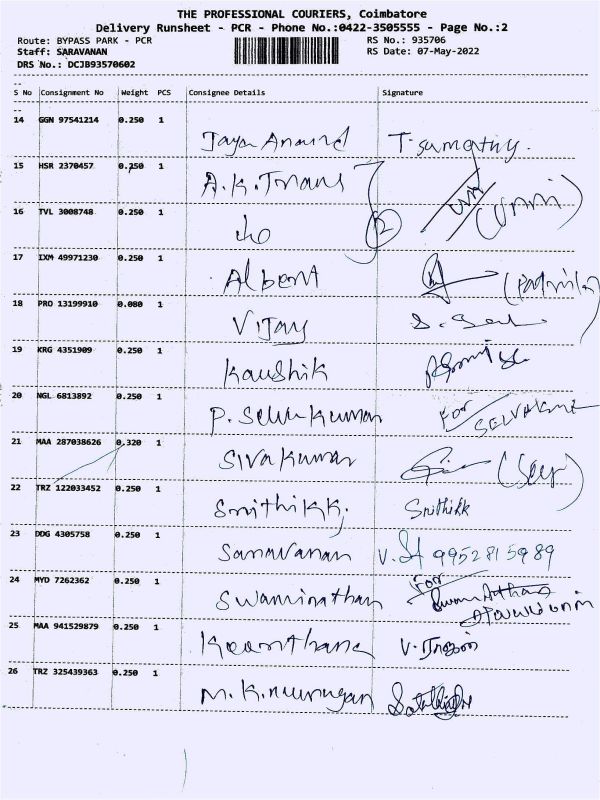 THE PROFESSIONAL COURIERS, Coimbatore
Delivery Runsheet - PCR - Phone No.:0422-3505555 - Page No.:2
Route: BYPASS PARK - PCR RS No.: 935706
Staff: SARAVANAN RS Date: 07-May-2022
DRS No.: DCJB93570602
S No Consignment No Weight PCS Consignee Details Signature
14 GGN 97541214 0.250 1
Jaya Anand T. Sumathy.
15 HSR 2370457 0.250 1
A.K. Trans
16 TVL 3008748 0.250 1 2
do (Unni)
17 IXM 49971230 0.250 1
Albert
18 PRO 13199910 0.080 1
Vijay
19 KRG 4351909 0.250 1
Kaushik
20 NGL 6813892 0.250 1 For
P. Selvakumar
21 MAA 287038626 0.320 1
Sivakumar
22 TRZ 122033452 0.250 1
Srithikk. Srithikk
23 DDG 4305758 0.250 1
Saravanan 9952815989
24 MYD 7262362 0.250 1 For
Swaminathan
25 MAA 941529879 0.250 1
26 TRZ 325439363 0.250 1
M.K. Murugan